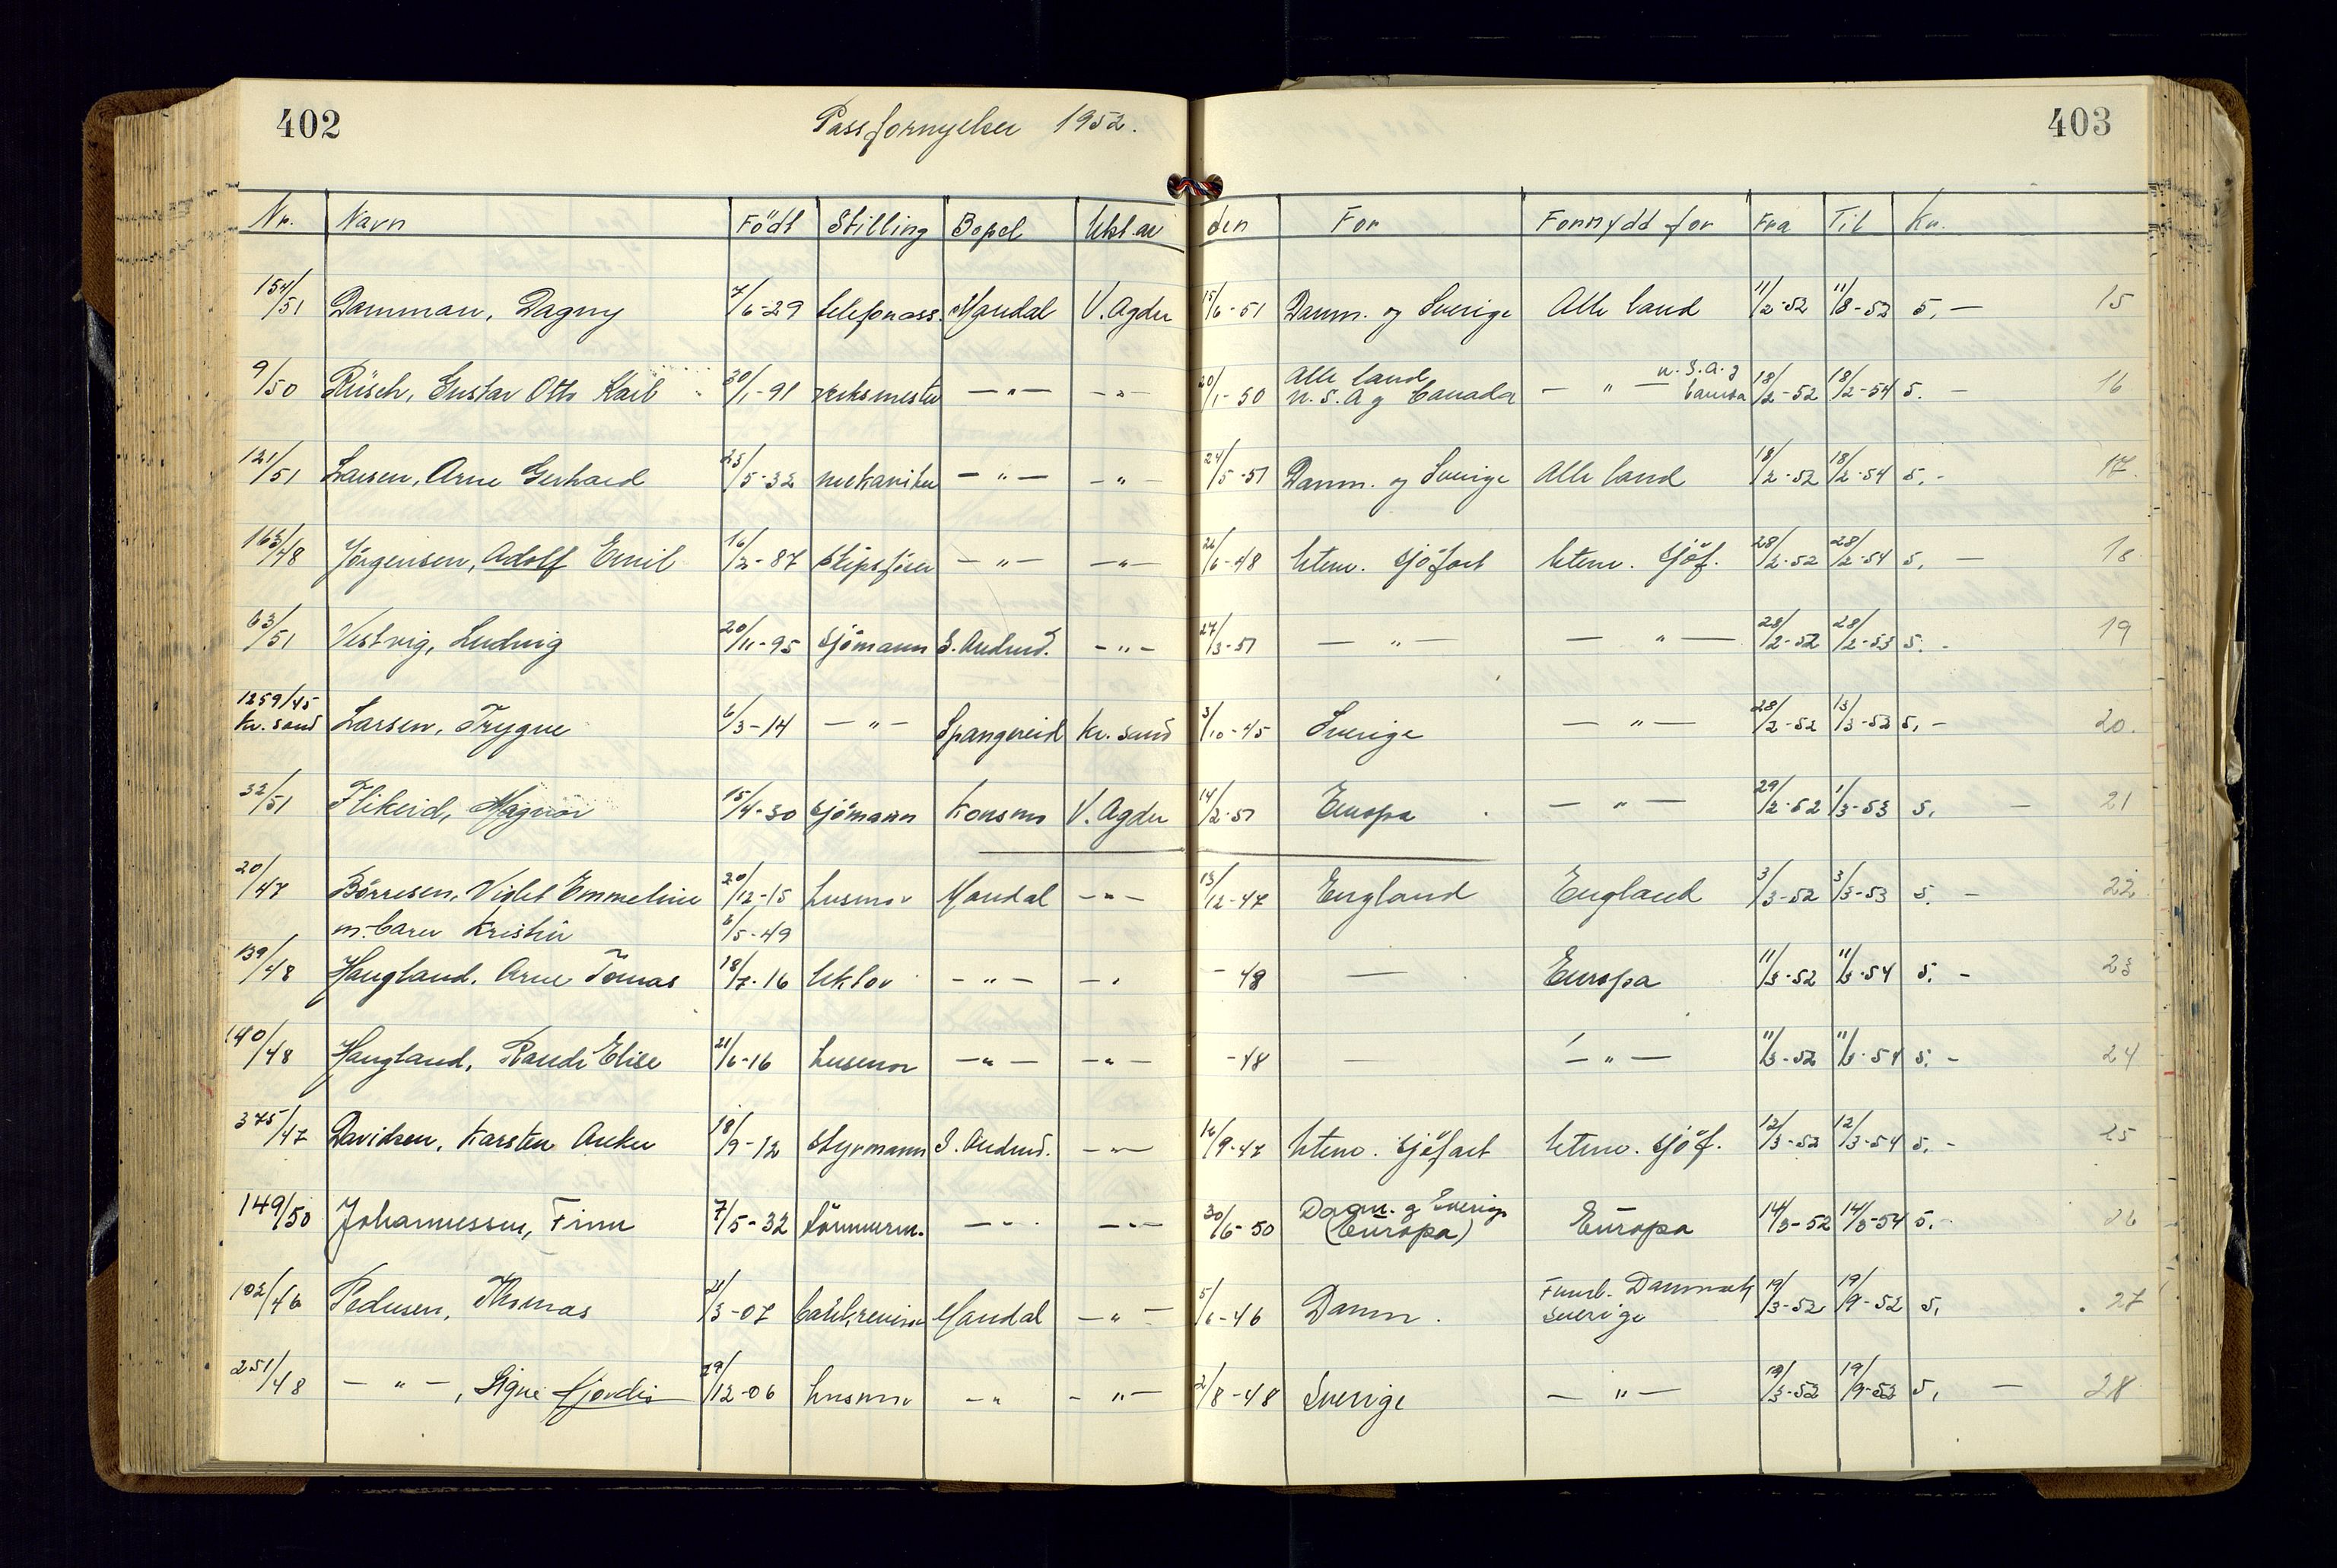 402 Passfornyelser 1952. 403
Nr. Navn Født Stilling Bopel Utst. av den For Fornydd for Fra Til Kr.
154/51 Damman, Dagny 7/6-29 telefonass. Mandal V. Agder 15/6-51 Danm. og Sverige Alle land 11/2-52 11/8-52 5,- 15
9/50 Rüsch, Gustav Otto Karl 20/1-91 verksmester -"- -"- 20/1-50 Alle land U.S.A. og Canada -"- U.S.A. og Canada 18/2-52 18/2-54 5.- 16
121/51 Larsen, Arne Gerhard 23/5-32 mekaniker -"- -"- 24/5-51 Danm. og Sverige Alle land 18/2-52 18/2-54 5.- 17.
163/48 Jørgensen, Adolf Emil 16/2-87 skipsfører -"- -"- 26/6-48 Utenr. sjöfart Utenr. sjöf. 28/2-52 28/2-54 5,- 18
63/51 Vestvig, Ludvig 20/11-95 Sjömann S. Audned. -"- 27/3-51 -"- -"- 28/2-52 28/2-53 5.- 19
1259/45 Kr. sand Larsen, Trygve 6/3-14 -"- Spangereid Kr. sand 3/10-45 Sverige -"- 28/2-52 13/3-53 5,- 20.
32/51 Flikeid, Magnor 15/4-30 Sjömann Konsmo V. Agder 14/2-51 Europa -"- 29/2-52 1/3-53 5,- 21
20/47 Börresen, Violet Emmeline 20/12-15 husmor Mandal -"- 13/12-47 England England 3/3-52 3/3-53 5.- 22.
m. barn Kristin 6/5-49
139/48 Haugland, Arne Tomas 18/7-16 -"- -"- -48 - Europa 11/3-52 11/3-54 5.- 23
140/48 Haugland, Randi Elise 21/6-16 husmor -"- -"- -48 - -"- 11/3-52 11/3-54 5.- 24
375/47 Davidsen, Karsten Anker 18/9-12 styrmann S. Audned. -"- 16/9-47 Utenr. sjöfart Utenr. sjöf. 12/3-52 12/3-54 5.- 25
149/50 Johannessen, Finn 7/5-32 tömmerm. -"- -"- 30/6-50 Danm. og Sverige (Europa) Europa 14/3-52 14/3-54 5.- 26
102/46 Pedersen, Thomas 21/3-07 Mandal -"- 5/6-46 Danm. Danmark Sverige 19/3-52 19/9-52 5, 27
251/48 -"-, Signe Hjördis 29/12-06 husmor -"- -"- 2/8-48 Sverige -"- 19/3-52 19/9-52 5,- 28